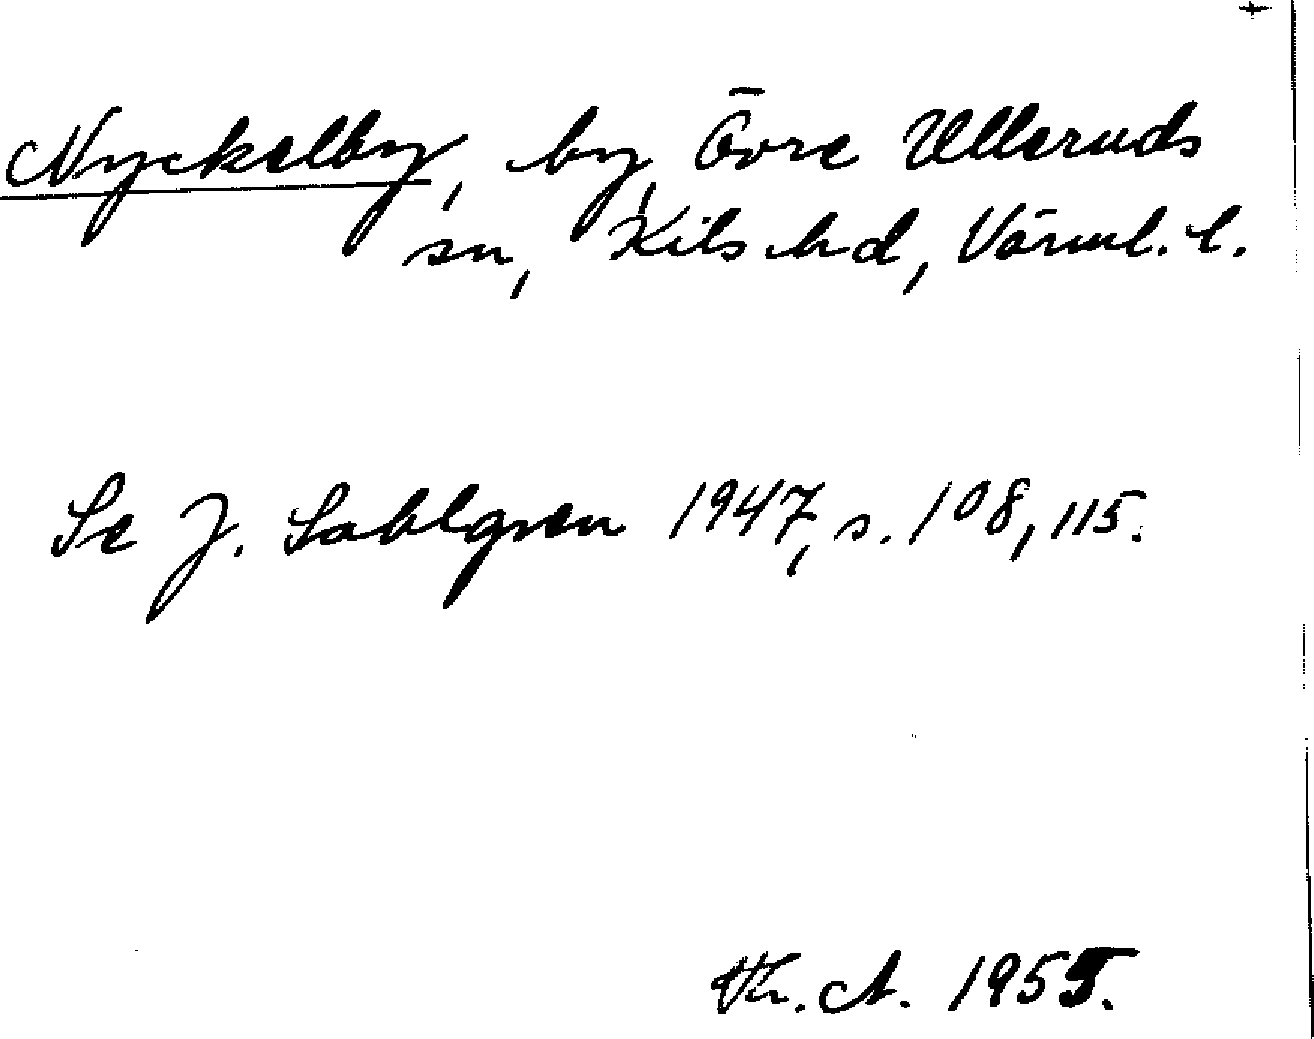 Nyckelby, by, Övre Ulleruds
sn, Kils hd, Värml. l.
Se J. Sahlgren 1947, s. 108, 115.
A. 1955.